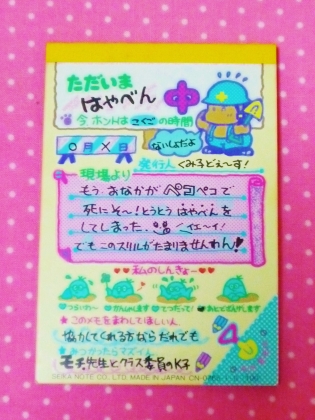 ただいま
はやべん 中
今、ホントは こくご の時間
○月×日
ないしょだよ
発行人 くみ子どぇ〜す!
現場より
もう、おなかが ペコペコで
死にそ〜!とうとう はやべんを
してしまった。 イェ〜イ!
でも このスリルが たまりませんわん!
私のしんきょー
つらいわー かんげきします てつだって! あとどけします
★このメモをまわしてほしい人
協かしてくれる方なら だれでも
★みつかったらマズイ人
モチ、先生と クラス委員のK子
SEIKA NOTE CO., LTD. MADE IN JAPAN